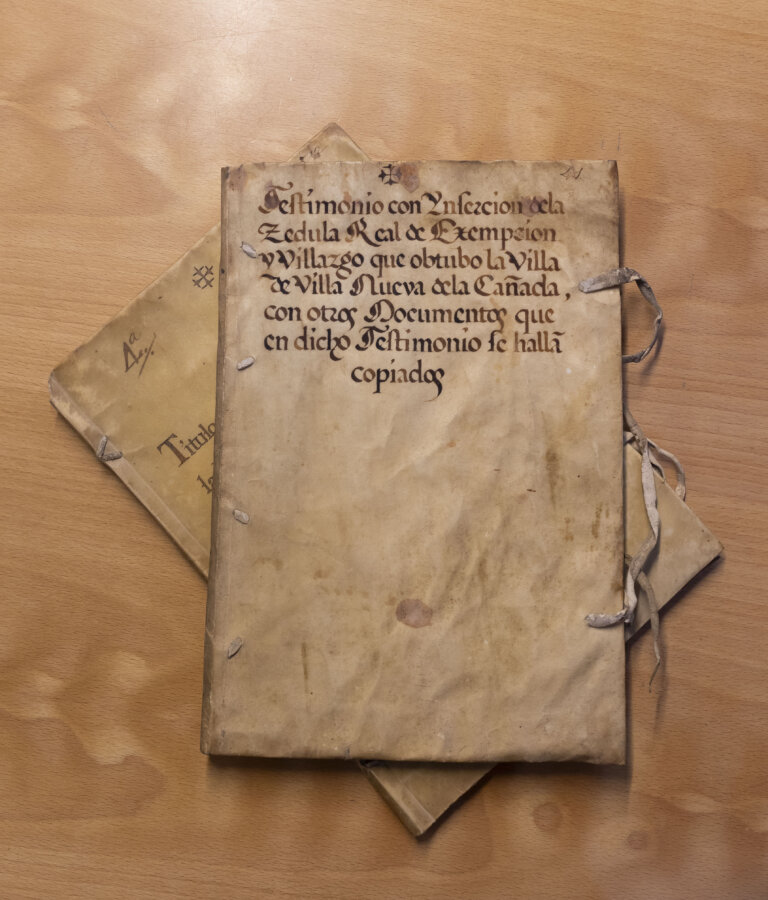 Testimonio con Ynsercion dela
Zedula Real de Exempcion
y Villazgo que obtubo la Villa
de Villa Nueva dela Cañada,
con otros Documentos que
en dicho Testimonio se hallā
copiados
4ª
Titulo